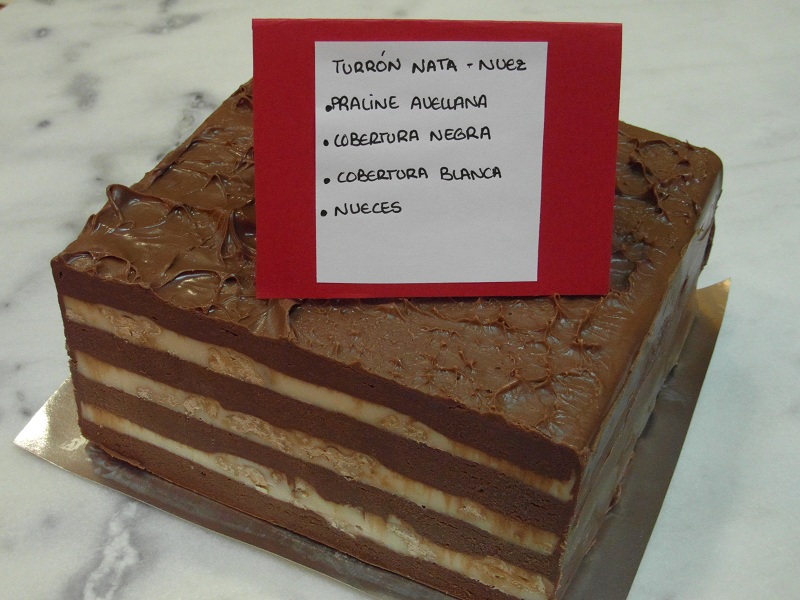 TURRÓN NATA - NUEZ
• PRALINE AVELLANA
• COBERTURA NEGRA
• COBERTURA BLANCA
• NUECES